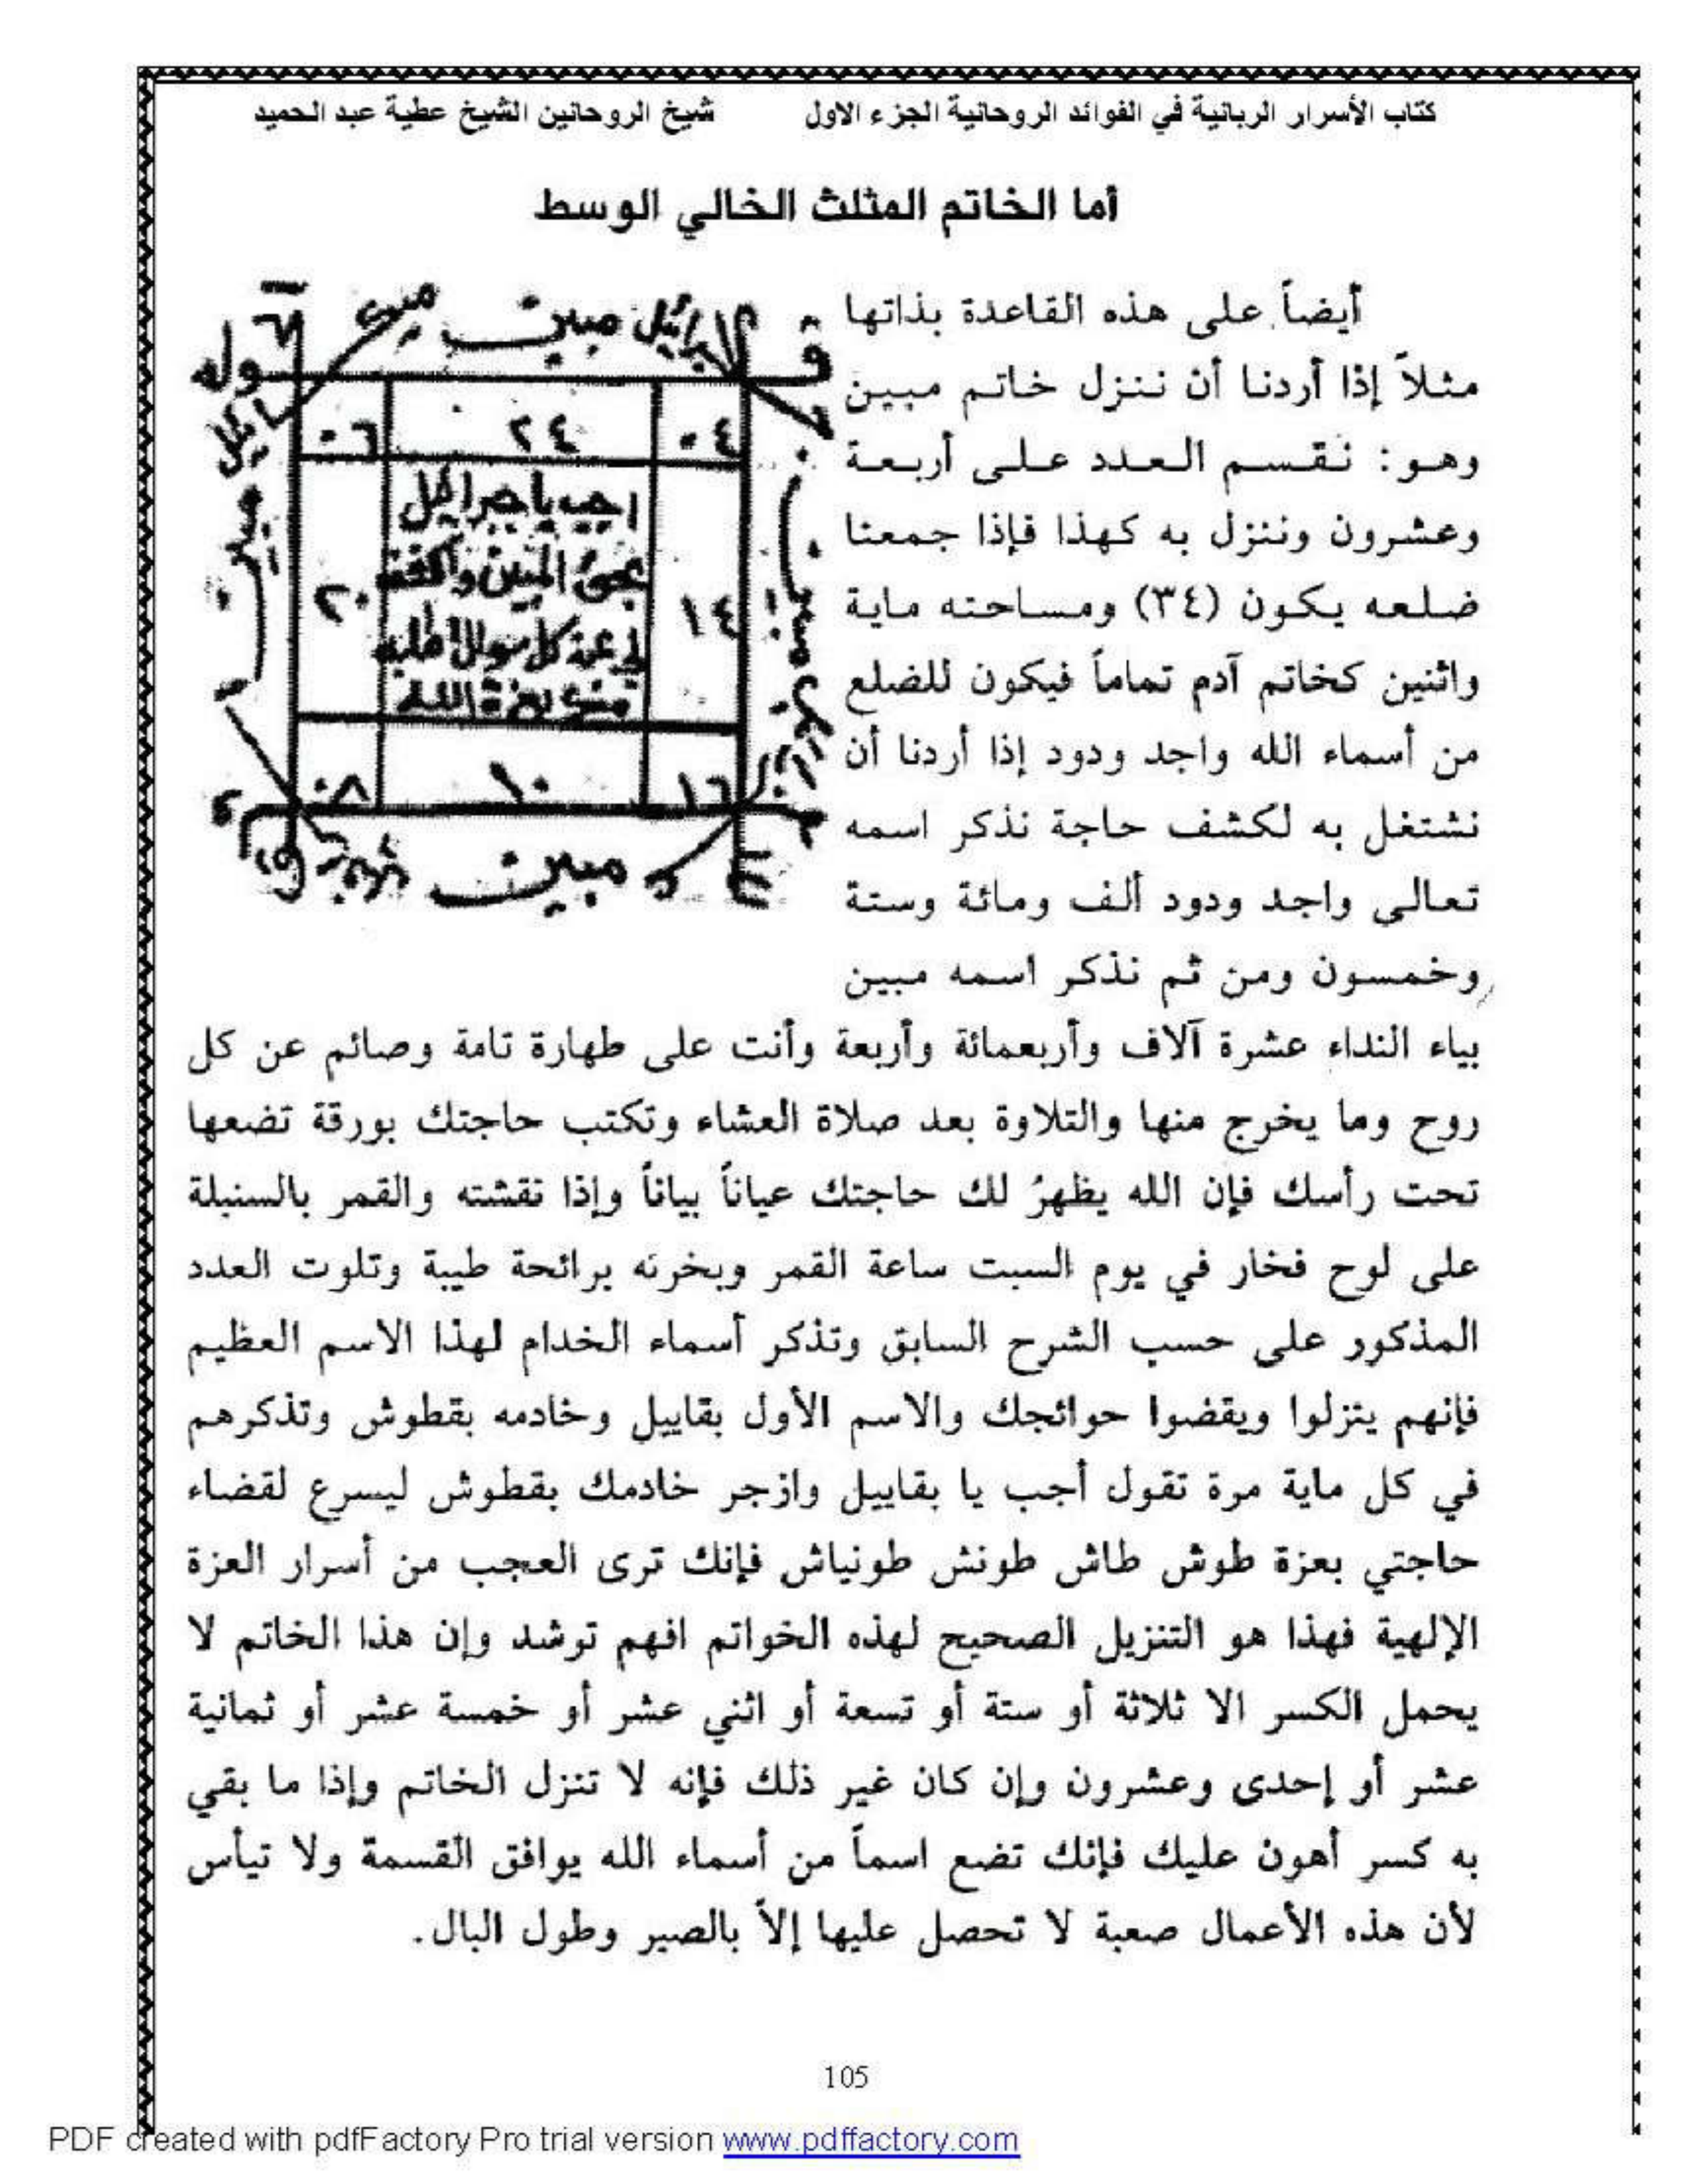 كتاب الأسرار الربانية في الفوائد الروحانية الجزء الاول شيخ الروحانين الشيخ عطية عبد الحميد
أما الخاتم المثلث الخالي الوسط
أيضاً على هذه القاعدة بذاتها
مثلاً إذا أردنا أن ننزل خاتم مبين
وهو: نقسم العدد على أربعة
وعشرون وننزل به كهذا فإذا جمعنا
ضلعه يكون (٣٤) ومساحته ماية
واثنين كخاتم آدم تماماً فيكون للضلع
من أسماء الله واجد ودود إذا أردنا أن
نشتغل به لكشف حاجة نذكر اسمه
تعالى واجد ودود ألف ومائة وستة
وخمسون ومن ثم نذكر اسمه مبين
قوله
جبرائيل مبين
مبين
مبين
مبين
٠٤ ٢٤ ٠٦
اجب يا جبرائيل
بحق المبين واكشف
لي عن كل سؤال اطلبه
بعزة الله
١٤ ٢٠
١٦ ١٠ ٠٨
بياء النداء عشرة آلاف وأربعمائة وأربعة وأنت على طهارة تامة وصائم عن كل
روح وما يخرج منها والتلاوة بعد صلاة العشاء وتكتب حاجتك بورقة تضعها
تحت رأسك فإن الله يظهرُ لك حاجتك عياناً بياناً وإذا نقشته والقمر بالسنبلة
على لوح فخار في يوم السبت ساعة القمر وبخرته برائحة طيبة وتلوت العدد
المذكور على حسب الشرح السابق وتذكر أسماء الخدام لهذا الاسم العظيم
فإنهم يتزلوا ويقضوا حوائجك والاسم الأول بقاييل وخادمه بقطوش وتذكرهم
في كل ماية مرة تقول أجب يا بقاييل وازجر خادمك بقطوش ليسرع لقضاء
حاجتي بعزة طوش طاش طونش طونياش فإنك ترى العجب من أسرار العزة
الإلهية فهذا هو التنزيل الصحيح لهذه الخواتم افهم توشد وإن هذا الخاتم لا
يحمل الكسر الا ثلاثة أو ستة أو تسعة أو اثني عشر أو خمسة عشر أو ثمانية
عشر أو إحدى وعشرون وإن كان غير ذلك فإنه لا تنزل الخاتم وإذا ما بقي
به كسر أهون عليك فإنك تضع اسماً من أسماء الله يوافق القسمة ولا تيأس
لأن هذه الأعمال صعبة لا تحصل عليها إلاّ بالصبر وطول البال.
105
PDF created with pdfFactory Pro trial version www.pdffactory.com